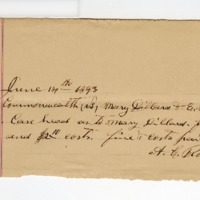 June 14th 1893
Commonwealth vs, Mary Dillard & E
Case heard as to Mary Dillard,
and costs. fine & costs pai
A. H.